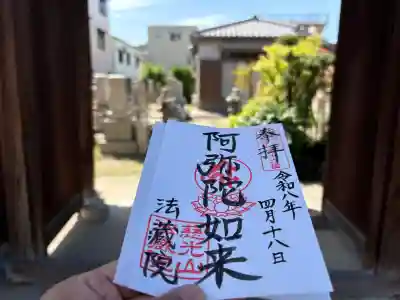 奉拝
令和八年四月十八日
阿弥陀如来
法蔵院
慈光山